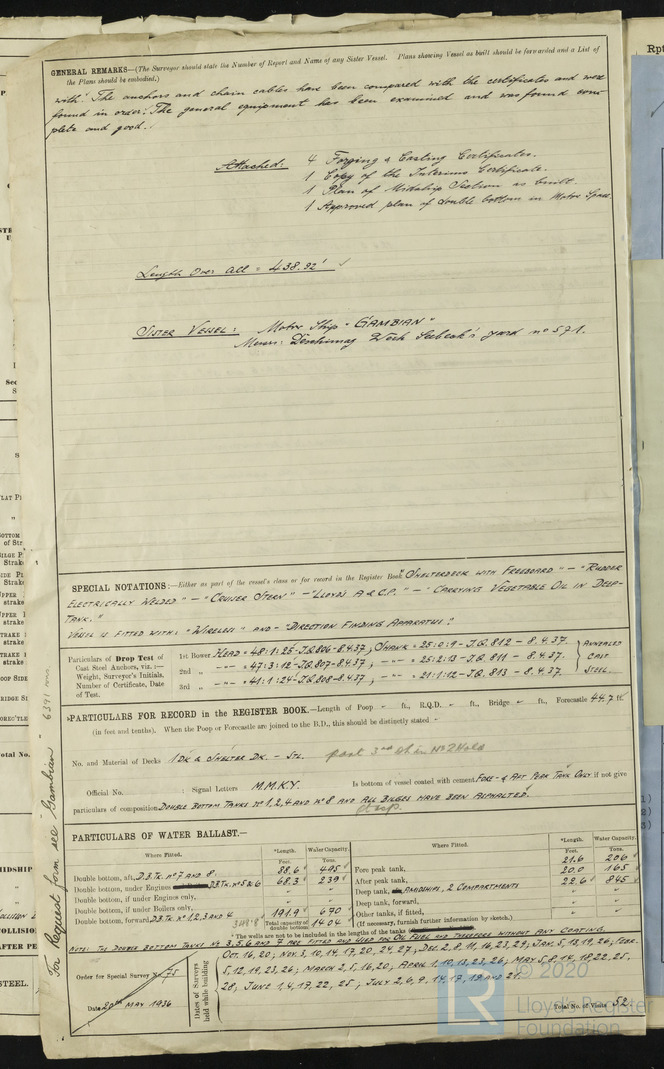 GENERAL REMARKS—(The Surveyor should state the Number of Report and Name of any Sister Vessel. Plans showing Vessel as built should be forwarded and a List of
the Plans should be embodied.)
with. The anchors and chain cables have been compared with the certificates and were
found in order. The general equipment has been examined and was found com
plete and good.
Attached: 4 Forging & Casting Certificates.
1 Copy of the Interims Certificate.
1 Plan of Midship Section as built.
1 Approved plan of double bottom in Motor Space
Length Over All = 438.92'
SISTER VESSEL: Motor Ship "GAMBIAN"
Messrs: Deschimag Werk Seebeck's yard no 571.
SPECIAL NOTATIONS:—Either as part of the vessel's class or for record in the Register Book "SHELTERDECK WITH FREEBOARD" — "RUDDER
ELECTRICALLY WELDED" — "CRUISER STERN" — "LLOYD'S A & C.P." — "CARRYING VEGETABLE OIL IN DEEP-
TANK."
VESSEL IS FITTED WITH: "WIRELESS" AND "DIRECTION FINDING APPARATUS".
Particulars of Drop Test of
Cast Steel Anchors, viz.:—
Weight, Surveyor's Initials,
Number of Certificate, Date
of Test.
1st Bower HEAD = 48:1:25-J.Q.806-8.4.37, SHANK = 25:0:9 - J.Q. 812 - 8.4.37.
2nd " -"- = 47:3:12-J.Q.807-8.4.37, -"- = 25:2:13 - J.Q. 811 - 8.4.37.
3rd " -"- = 41:1:24-J.Q.808-8.4.37, -"- = 21:1:12 - J.Q. 813 - 8.4.37.
ANNEALED
CAST
STEEL.
PARTICULARS FOR RECORD in the REGISTER BOOK.—Length of Poop - ft., R.Q.D. - ft., Bridge - ft., Forecastle 44.7 ft
(in feet and tenths). When the Poop or Forecastle are joined to the B.D., this should be distinctly stated -
No. and Material of Decks 1 DK & SHELTER DK. - STL. part 3rd dk in No 2 Hold
Official No. ; Signal Letters M.M.K.Y. Is bottom of vessel coated with cement FORE- & AFT PEAK TANK ONLY if not give
particulars of composition DOUBLE BOTTOM TANKS No 1,2,4 AND No 8 AND ALL BILGES HAVE BEEN ASPHALTED.
PARTICULARS OF WATER BALLAST.—
Where Fitted. *Length. Feet. Water Capacity. Tons.
Double bottom, aft, D.B.TK. No 7 AND 8 88.6 495
Double bottom, under Engines D.B.TK. No 5 & 6 68.3 239
Double bottom, if under Engines only, " "
Double bottom, if under Boilers only, " "
Double bottom, forward, D.B.TK. No 1,2,3 AND 4 191.9 670
348.8 Total capacity of double bottom 1404
Where Fitted. *Length. Feet. Water Capacity. Tons.
Fore peak tank, 21.6 206
After peak tank, 20.0 165
Deep tank, AMIDSHIPS, 2 COMPARTMENTS 22.6 845
Deep tank, forward,
Other tanks, if fitted,
(If necessary, furnish further information by sketch.)
* The wells are not to be included in the lengths of the tanks
NOTE: THE DOUBLE BOTTOM TANKS No 3,5,6 AND 7 ARE FITTED AND USED FOR OIL FUEL AND THEREFORE WITHOUT ANY COATING.
Order for Special Survey No. 75
Date 20th MAY 1936
Dates of Surveys
held while building
OCT. 16, 20; NOV. 3, 10, 14, 17, 20, 24, 27; DEC. 2, 8, 11, 16, 23, 29; JAN. 5, 13, 19, 26; FEBR.
5, 12, 19, 23, 26; MARCH 2, 5, 16, 20; APRIL 1, 10, 13, 23, 26; MAY 5, 8, 14, 18, 22, 25,
28; JUNE 1, 4, 17, 22, 25; JULY 2, 6, 9, 14, 17, 19 AND 21.
Total No. of Visits 52
For Request form see "Gambian" 6391
© 2020
Lloyd's Register
Foundation
LR
Rpt